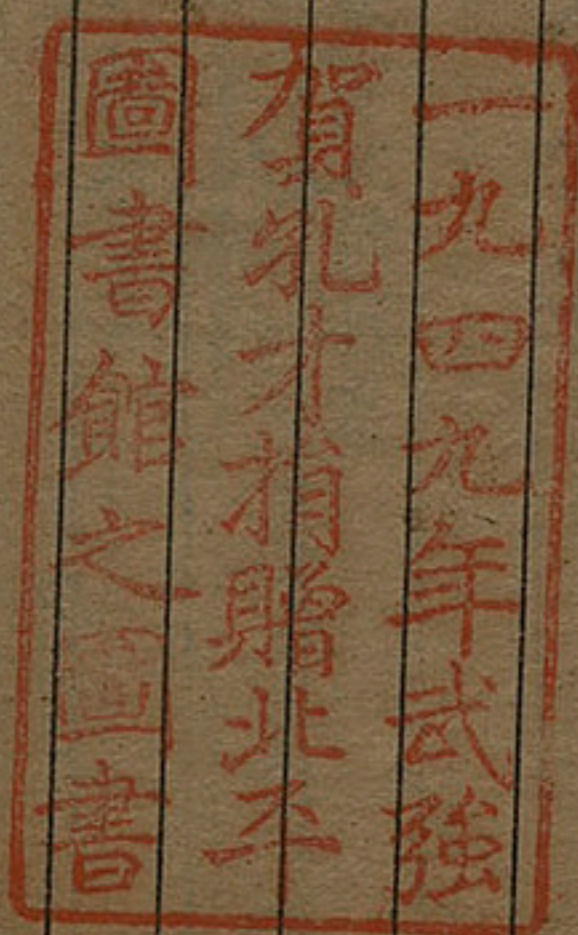 一九四九年武強
賀孔才捐贈北平
圖書館之圖書